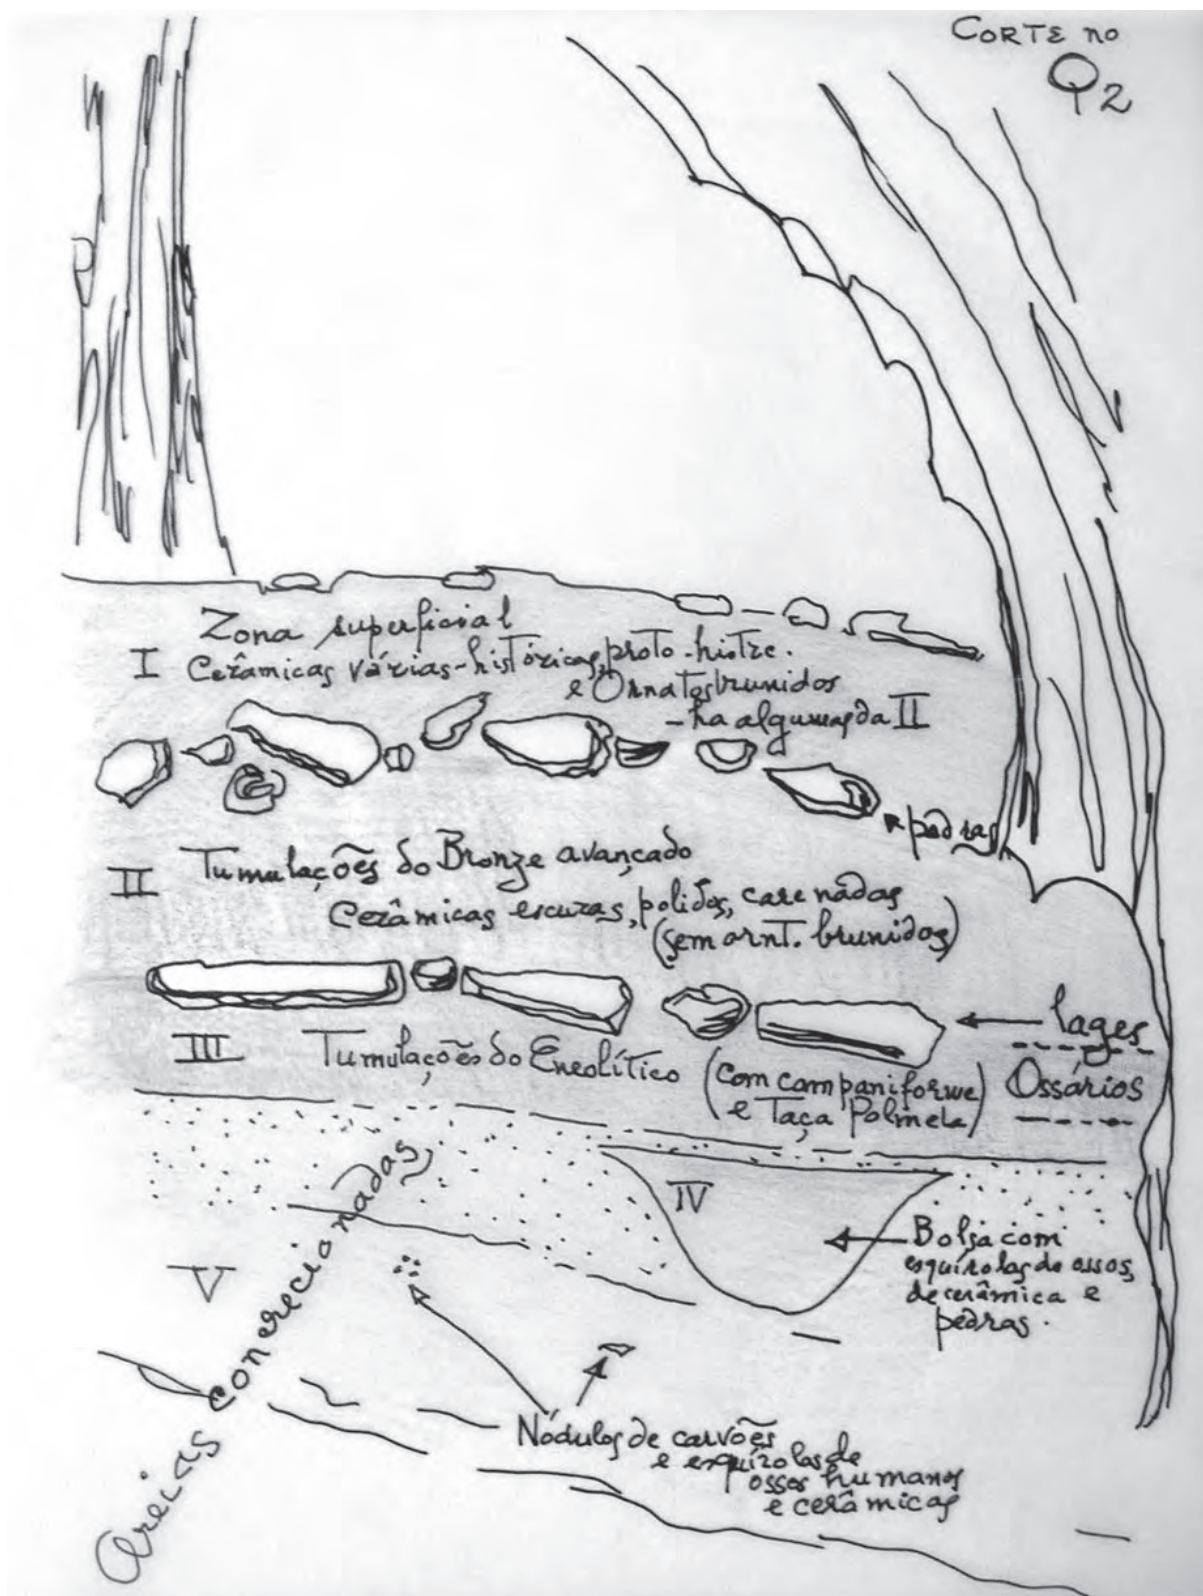 CORTE no
Q2
Zona superficial
I Cerâmicas várias-históricas, proto-histre.
e Ornatos brunidos
- ha algumas da II
pedras
II Tumulações do Bronze avançado
Cerâmicas escuras, polidas, carenadas
(sem ornt. brunidos)
lages
III Tumulações do Eneolítico (com campaniforme
e Taça Palmela)
Ossários
IV
Bolsa com
esquírolas de ossos,
de cerâmica e
pedras.
V
Areias concrecionadas,
Nódulos de carvões
e esquírolas de
ossos humanos
e cerâmicas